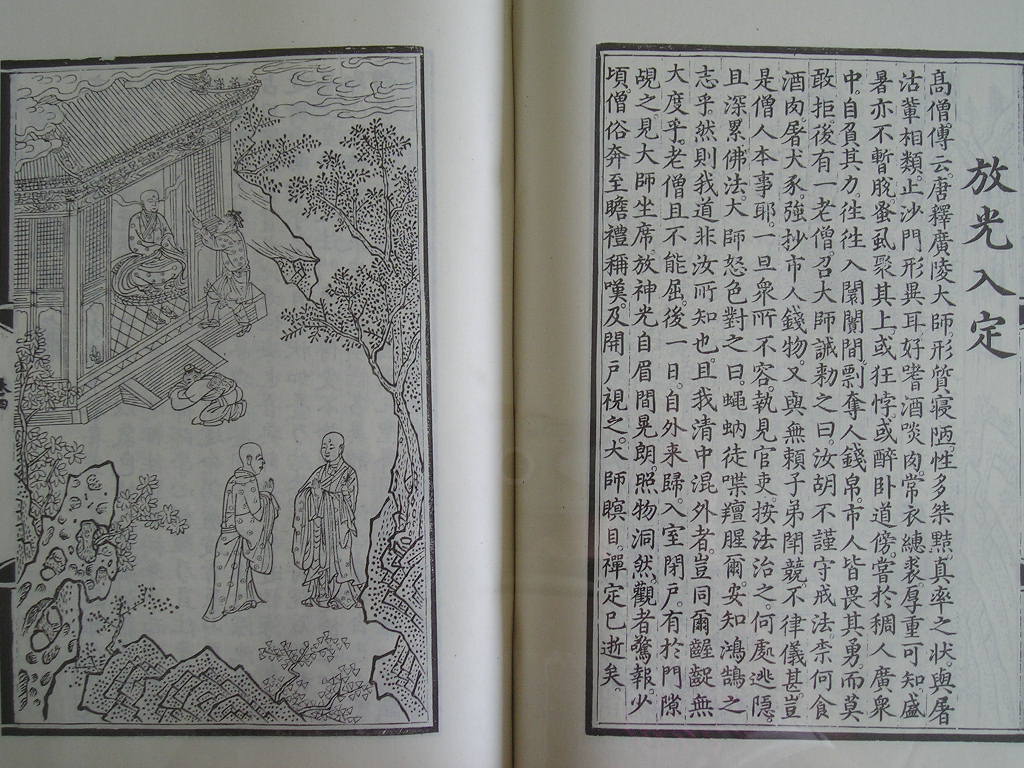 放光入定
高僧傳云。唐釋廣陵大師。形質寢陋。性多桀黠。真率之狀。與屠
沽輩相類。止沙門形異耳。好嗜酒啖肉。常衣繐裘。厚重可知。盛
暑亦不暫脫。蚤虱聚其上。或狂悖或醉卧道傍。嘗於稠人廣衆
中。自負其力。往往入闤闠間。剽奪人錢帛。市人皆畏其勇。而莫
敢拒。後有一老僧。召大師誡勑之曰。汝胡不謹守戒法。柰何食
酒肉。屠犬豕。強抄市人錢物。又與無賴子弟鬥競。不律儀甚。豈
是僧人本事耶。一旦衆所不容。執見官吏。按法治之。何處逃隱。
且深累佛法。大師怒色對之曰。蠅蚋徒喋羶腥爾。安知鴻鵠之
志乎。然則我道非汝所知也。且我清中混外者。豈同爾齷齪無
大度乎。老僧且不能屈。後一日。自外来歸。入室閉戶。有於門隙
覗之。見大師坐席放神光。自眉間晃朗。照物洞然。觀者驚報。少
頃僧俗奔至瞻禮稱嘆。及開戶視之。大師瞑目。禪定已逝矣。